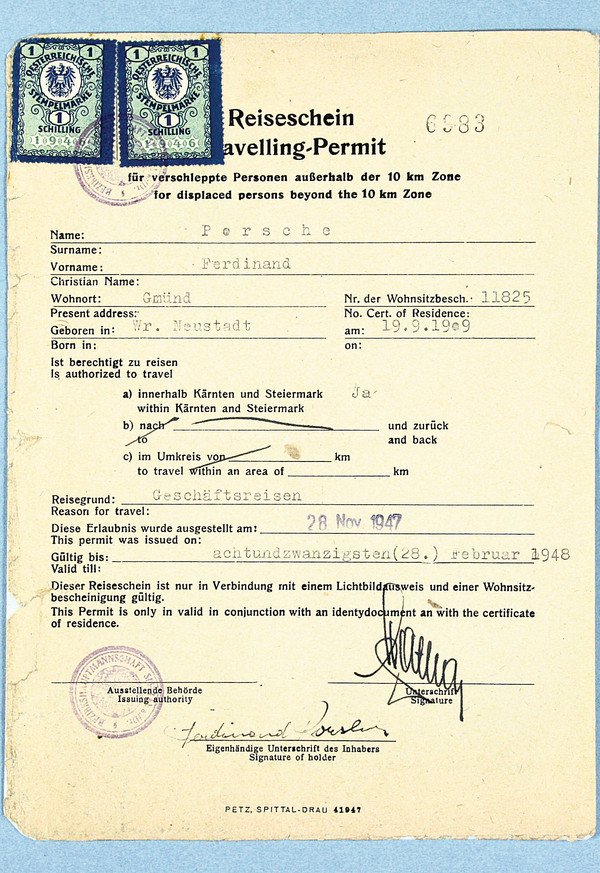 1 1
ÖSTERREICHISCHE
STEMPELMARKE
1
SCHILLING
1 1
ÖSTERREICHISCHE
STEMPELMARKE
1
SCHILLING
Reiseschein 6983
avelling-Permit
für verschleppte Personen außerhalb der 10 km Zone
for displaced persons beyond the 10 km Zone
Name: Porsche
Surname:
Vorname: Ferdinand
Christian Name:
Wohnort: Gmünd Nr. der Wohnsitzbesch. 11825
Present address: No. Cert. of Residence:
Geboren in: Wr. Neustadt am: 19.9.1909
Born in: on:
Ist berechtigt zu reisen
Is authorized to travel
a) innerhalb Kärnten und Steiermark Ja
within Kärnten and Steiermark
b) nach und zurück
to and back
c) im Umkreis von km
to travel within an area of km
Reisegrund: Geschäftsreisen
Reason for travel:
Diese Erlaubnis wurde ausgestellt am: 28 Nov 1947
This permit was issued on:
Gültig bis: achtundzwanzigsten(28.) Februar 1948
Valid till:
Dieser Reiseschein ist nur in Verbindung mit einem Lichtbildausweis und einer Wohnsitz-
bescheinigung gültig.
This Permit is only in valid in conjunction with an identydocument an with the certificate
of residence.
BEZIRKSHAUPTMANNSCHAFT
Ausstellende Behörde Unterschrift
Issuing authority Signature
Ferdinand Porsche
Eigenhändige Unterschrift des Inhabers
Signature of holder
PETZ, SPITTAL-DRAU 41947